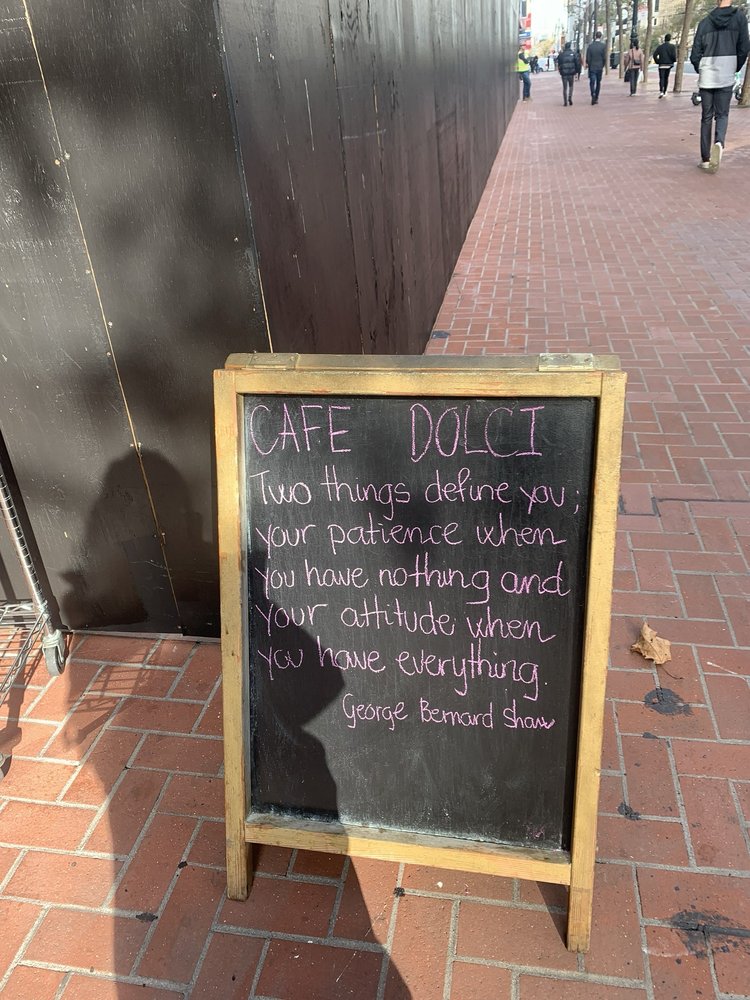 CAFE DOLCI
Two things define you;
your patience when
you have nothing and
your attitude when
you have everything.
George Bernard Shaw